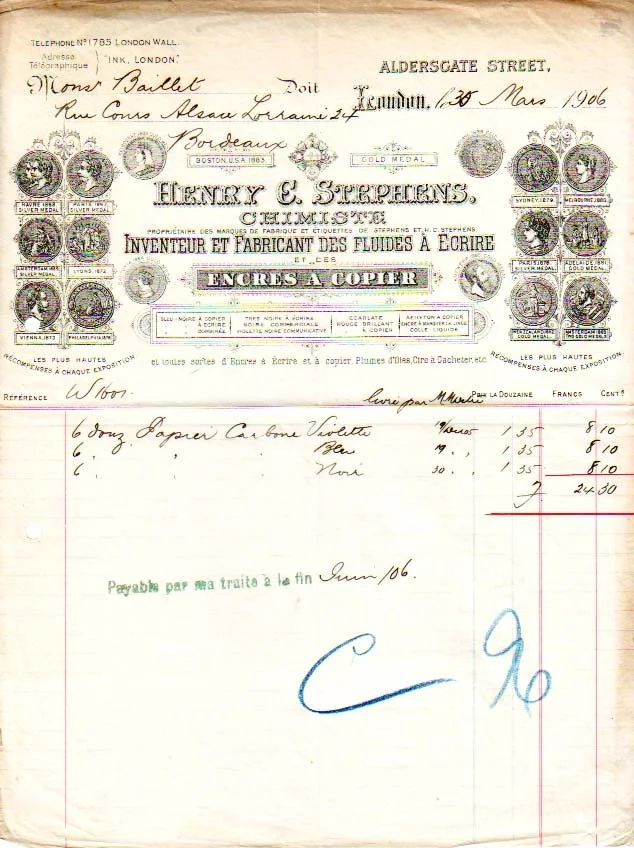 TELEPHONE No 1785 LONDON WALL.
Adresse Télégraphique } "INK, LONDON."
ALDERSGATE STREET.
Monsr Baillet Doit London, 30 Mars 1906
Rue Cours Alsace Lorraine 24
Bordeaux
BOSTON, U.S.A 1883.
GOLD MEDAL
HAVRE 1868 SILVER MEDAL
PARIS 1867 SILVER MEDAL
SYDNEY, 1879.
MELBOURNE, 1880.
HENRY C. STEPHENS,
CHIMISTE
PROPRIÉTAIRE DES MARQUES DE FABRIQUE ET ÉTIQUETTES DE STEPHENS ET H. C. STEPHENS
INVENTEUR ET FABRICANT DES FLUIDES À ECRIRE
ET DES
ENCRES A COPIER
AMSTERDAM 1869 SILVER MEDAL
LYONS, 1872
PARIS, 1878 SILVER MEDAL.
ADELAIDE, 1881. GOLD MEDAL.
VIENNA, 1873
PHILADELPHIA, 1876
NEW ZEALAND, 1882 GOLD MEDAL.
AMSTERDAM, 1883 TWO GOLD MEDALS
BLEU-NOIRE À COPIER
À ECRIRE
COMBINÉE
TRES NOIRE À ECRIRE
NOIRE COMMERCIALE
VIOLETTE NOIRE COMMUNICATIVE
ECARLATE
ROUGE BRILLANT
À COPIER
ENCRE À MARQUER LE LINGE
COLLE LIQUIDE
LES PLUS HAUTES RÉCOMPENSES À CHAQUE EXPOSITION
et toutes sortes d'Encres à Ecrire et à copier, Plumes d'Oies, Cire à Cacheter, etc.
LES PLUS HAUTES RÉCOMPENSES À CHAQUE EXPOSITION.
RÉFÉRENCE livré par PRIX LA DOUZAINE FRANCS CENTs
6 douz Papier Carbone Violette 1 35 8 10
6 " " " Bleu 19 " " 1 35 8 10
6 " " " Noir 30 " " 1 35 8 10
F 24 30
Payable par ma traite à la fin Juin /06.
C 96